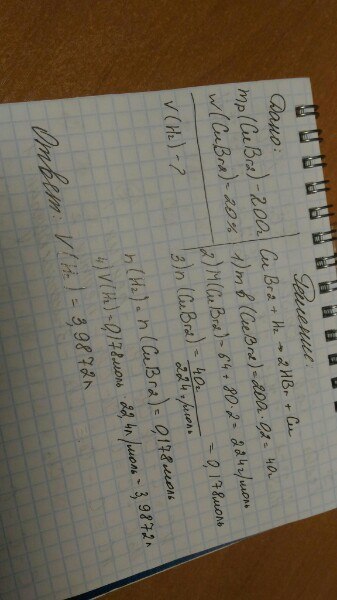 Дано:
mр(CuBr2) - 200г
w(CuBr2) = 20%
V(H2) - ?
Решение:
CuBr2 + H2 → 2HBr + Cu
1) mв(CuBr2) = 200г · 0,2 = 40г
2) M(CuBr2) = 64 + 80·2 = 224г/моль
3) n(CuBr2) = 40г / 224г/моль = 0,178моль
n(H2) = n(CuBr2) = 0,178моль
4) V(H2) = 0,178моль · 22,4л/моль = 3,9872л
Ответ: V(H2) = 3,9872л